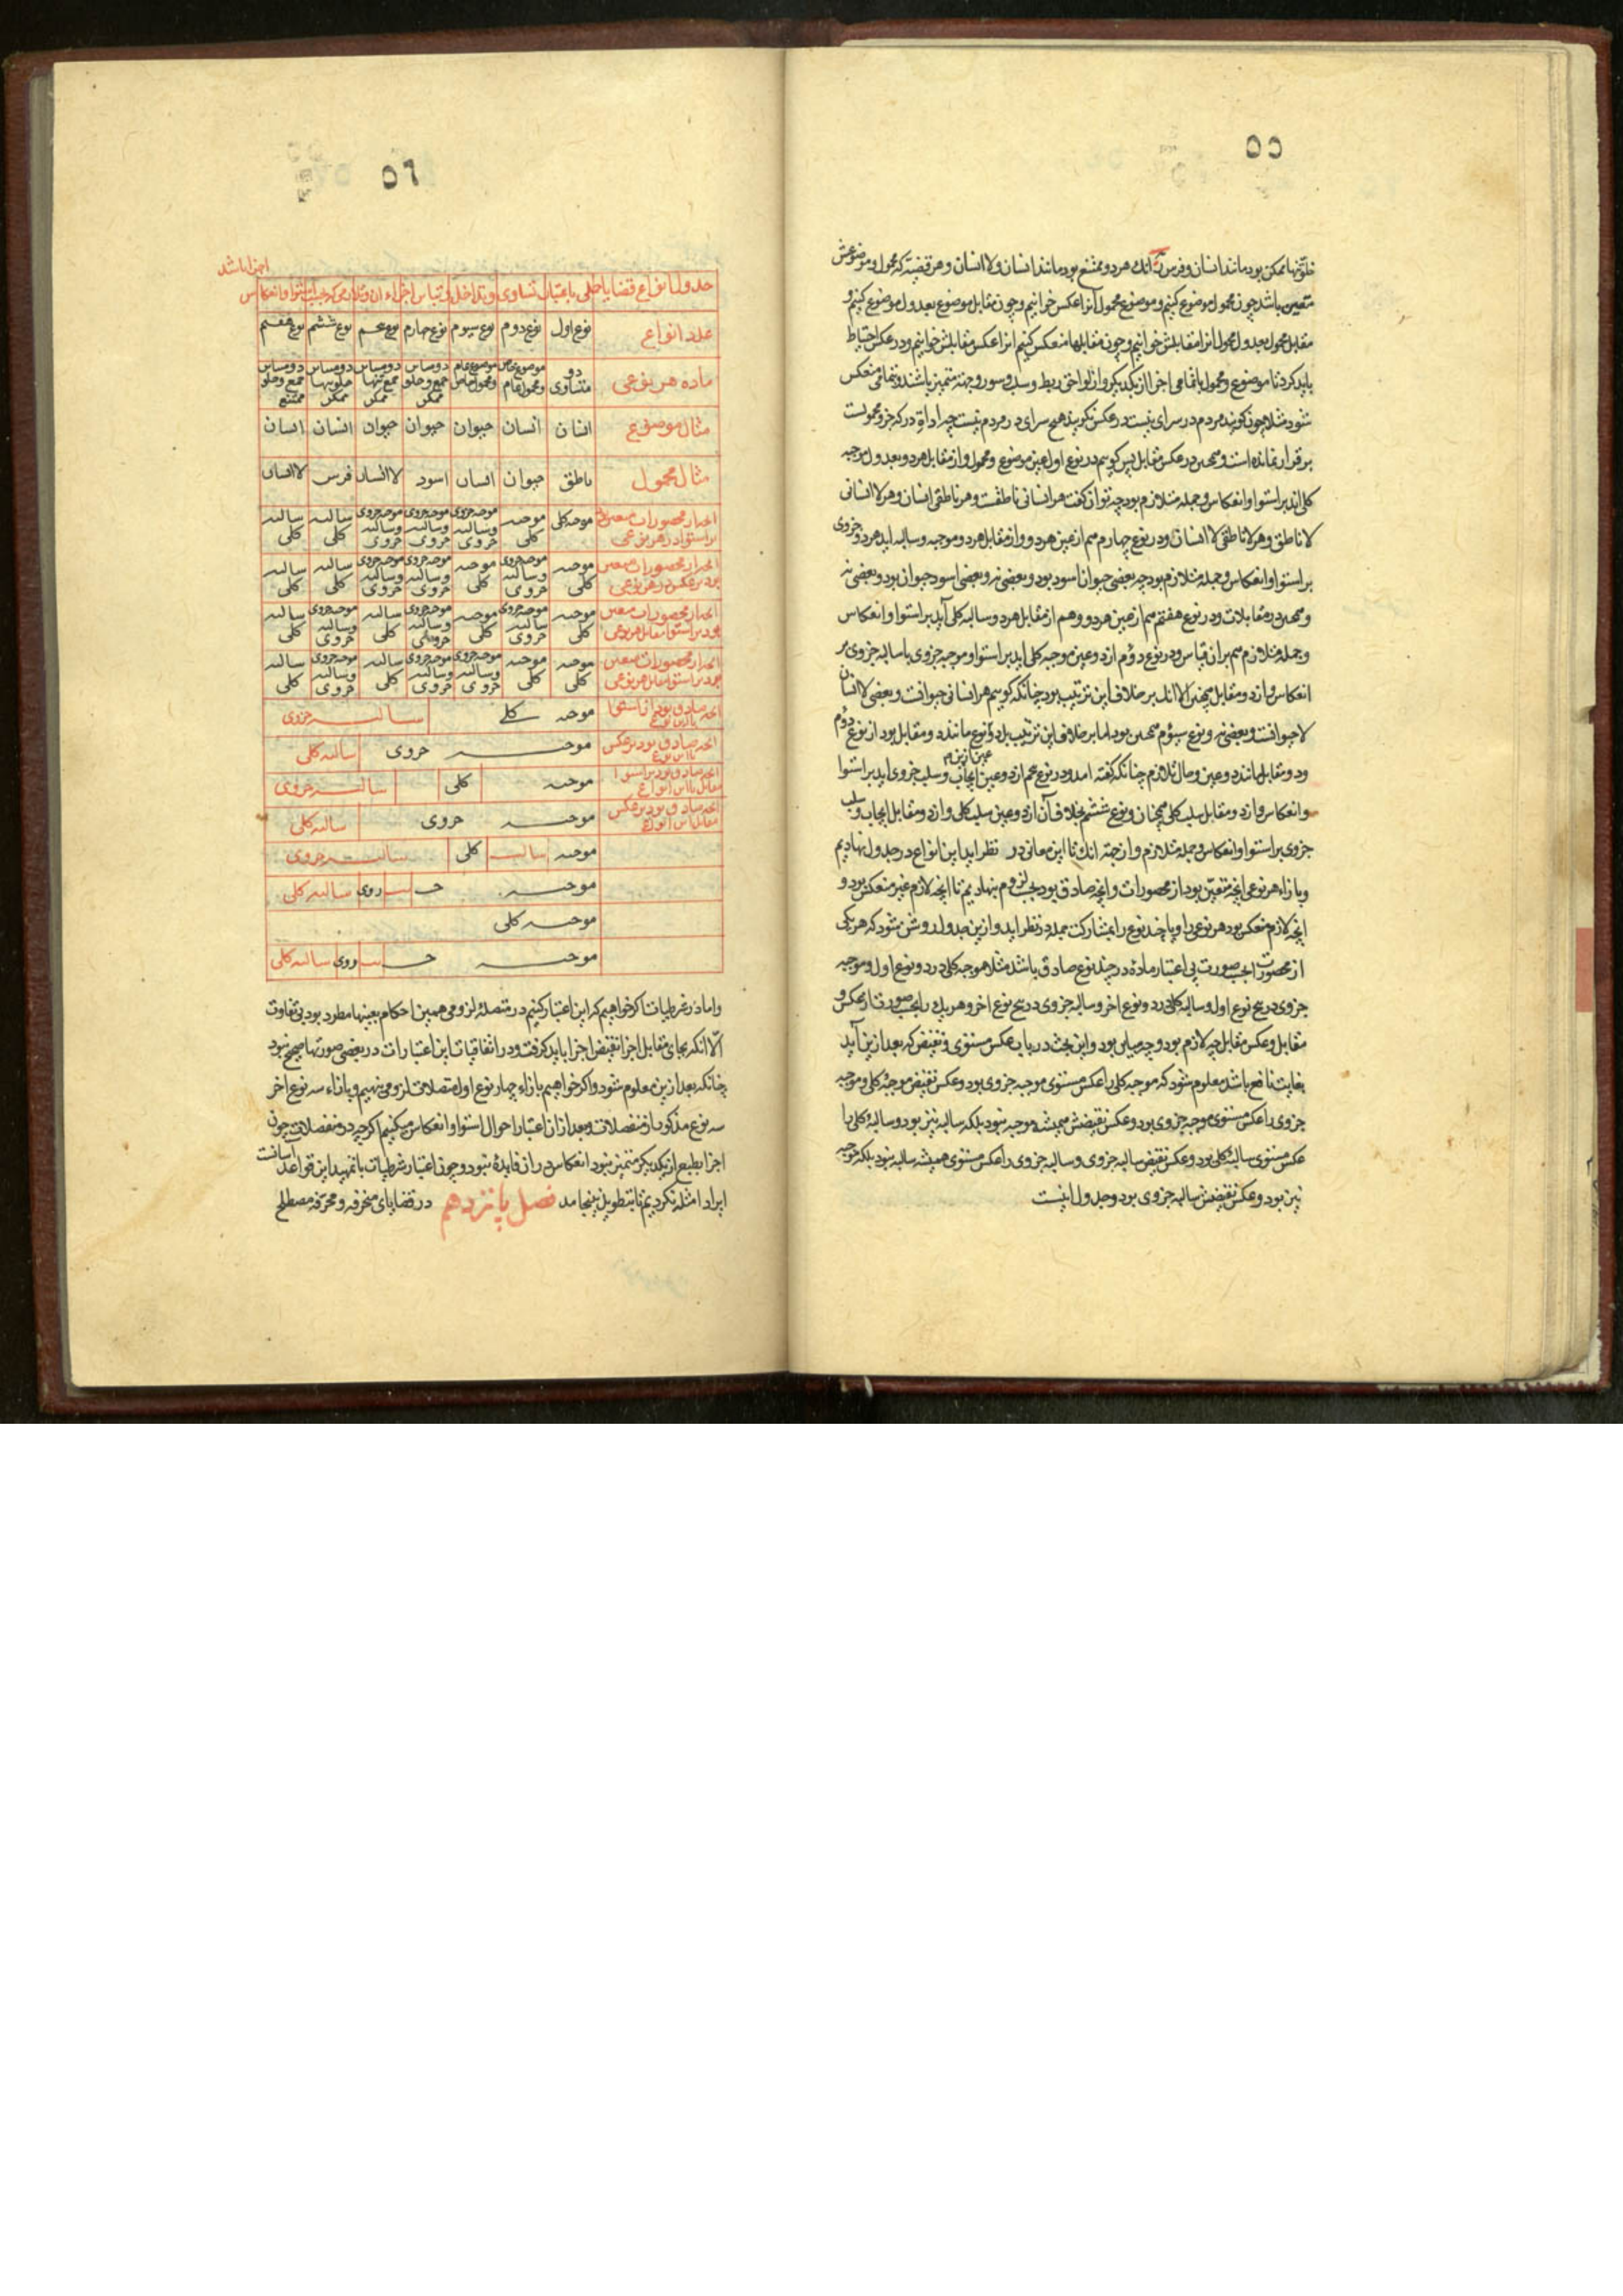 ۵۵
خلو تنها ممکن بود مانند انسان و فرس یا آنک هر دو ممتنع بود مانند انسان و لاانسان و هر قضیه که محمول و موضوعش
متعین باشد چون محمول موضوع کنیم و موضوع محمول آنرا عکس خوانیم و چون مقابل موضوع بعدول موضوع کنیم و
مقابل محمول بعدول محمول انرا مقابلش خوانیم و چون مقابلها منعکس کنیم انرا عکس مقابلش خوانیم و در عکس احتیاط
باید کرد تا موضوع و محمول بتمامی اجزا از یکدیگر و از لواحق ربط و سلب و سور و جهة متمیز باشند و بتمامی منعکس
شود مثلا چون کویند مردم در سرای نیست در عکس نکویند هیچ سرای در مردم نیست چه اداة در که جزو محمولست
برقرار نمانده است و همچنین در عکس مقابل پس کوییم در نوع اول عین موضوع و محمول و از مقابل هر دو بعدول موجبه
کلی اید بر استوا و انعکاس و جمله متلازم بود چه توان کفت هر انسانی ناطقست و هر ناطقی انسان و هر لاانسانی
لاناطق و هر لاناطقی لاانسان و در نوع چهارم هم از عین هر دو و از مقابل هر دو موجبه و سالبه اید هر دو جزوی
بر استوا و انعکاس و جمله متلازم بود چه بعضی حیوانات اسود بود و بعضی نه و بعضی اسود حیوان بود و بعضی نه
و همچنین در مقابلات و در نوع هفتم هم از عین هر دو و هم از مقابل هر دو سالبه کلی آید بر استوا و انعکاس
و جمله متلازم هم بران قیاس و در نوع دوم از دو عین موجبه کلی اید بر استوا و موجبه جزوی با سالبه جزوی بر
انعکاس و از دو مقابل همچنین الا انک بر خلاف این ترتیب بود چنانکه کوییم هر انسانی حیوانست و بعضی لاانسان
لاحیوانست و بعضی نه و نوع سیوم همچنین بود اما بر خلاف این ترتیب بل دو عین این نوع مانند دو مقابل بود از نوع دوم
و دو مقابل مانند دو عین و حال تلازم چنانکه کفته امد و در نوع پنجم از دو عین ایجاب و سلب جزوی اید بر استوا
و انعکاس و از دو مقابل سلب کلی همچنان و نوع ششم بخلاف آن از دو عین سلب کلی و از دو مقابل ایجاب و سلب
جزوی بر استوا و انعکاس و جمله متلازم و از جهة انک تا این معانی در نظر اید این انواع در جدول نهادیم
و بازاء هر نوعی انچه متعین بود از محصورات و انچه صادق بود بحسب لزوم بنهادیم تا انچه لازم غیر منعکس بود و
انچه لازم منعکس بود هر نوع را و یا چند نوع را بمشارکت جمله در نظر اید و ازین جدول روشن شود که هر یکی
از محصورات بحسب صورت بی اعتبار ماده در چند نوع صادق باشد مثلا موجبه کلی در دو نوع اول و موجبه
جزوی در پنج نوع اول و سالبه کلی در دو نوع اخر و سالبه جزوی در پنج نوع اخر و هر یک را بحسب صورت از عکس و
مقابل و عکس مقابل چه لازم بود و چه مباین بود و این بحث در باب عکس مستوی و نقیض که بعد ازین آید
بغایت نافع باشد معلوم شود که موجبه کلی را عکس مستوی موجبه جزوی بود و عکس نقیض موجبه کلی و موجبه
جزوی را عکس مستوی موجبه جزوی بود و عکس نقیضش همیشه موجبه نبود بلکه سالبه نیز بود و سالبه کلی را
عکس مستوی سالبه کلی بود و عکس نقیض سالبه جزوی و سالبه جزوی را عکس مستوی همیشه سالبه نبود بلکه موجبه
نیز بود و عکس نقیضش سالبه جزوی بود و جدول اینست
۵٦
جدول انواع قضایا حملی باعتبار تساوی و تداخل و تباین اجزاء ان و تلازمی که بحسب استوا و انعکاس
اجزا باشد
عدد انواع نوع اول نوع دوم نوع سیوم نوع چهارم نوع پنجم نوع ششم نوع هفتم
ماده هر نوعی دو متساوی موضوع خاص و محمول عام موضوع عام و محمول خاص دو مباین جمع و خلو ممکن دو مباین جمع تنها ممکن دو مباین خلو تنها ممکن دو مباین جمع و خلو ممتنع
مثال موضوع انسان انسان حیوان حیوان حیوان انسان انسان
مثال محمول ناطق حیوان انسان اسود لاانسان فرس لاانسان
انچه از محصورات متعین بود بر استوا در هر نوعی موجبه کلی موجبه کلی موجبه جزوی و سالبه جزوی موجبه جزوی و سالبه جزوی موجبه جزوی و سالبه جزوی سالبه کلی سالبه کلی
انچه از محصورات متعین بود بر عکس در هر نوعی موجبه کلی موجبه جزوی و سالبه جزوی موجبه کلی موجبه جزوی و سالبه جزوی موجبه جزوی و سالبه جزوی سالبه کلی سالبه کلی
انچه از محصورات متعین بود بر استوا مقابل هر نوعی موجبه کلی موجبه جزوی و سالبه جزوی موجبه کلی موجبه جزوی و سالبه جزوی سالبه کلی موجبه جزوی و سالبه جزوی سالبه کلی
انچه از محصورات متعین بود بر استوا مقابل هر نوعی موجبه کلی موجبه کلی موجبه جزوی و سالبه جزوی موجبه جزوی و سالبه جزوی سالبه کلی موجبه جزوی و سالبه جزوی سالبه کلی
انچه صادق بود بر استوا موجبه کلی سالبه جزوی
انچه صادق بود بر عکس موجبه جزوی سالبه کلی
انچه صادق بود بر استوا مقابل این انواع موجبه کلی سالبه جزوی
انچه صادق بود بر عکس مقابل این انواع موجبه جزوی سالبه کلی
موجبه سالبه کلی سالبه جزوی
موجبه جزوی سالبه کلی
موجبه کلی
موجبه جزوی سالبه کلی
و اما در شرطیات اکر خواهیم که این اعتبار کنیم در متصله لزومی همین احکام بعینها مطرد بود بی تفاوت
الا انکه بجای مقابل اجزا نقیض اجزا باید کرفت و در اتفاقیات این اعتبارات در بعضی صورتها صحیح نبود
چنانکه بعد ازین معلوم شود و اکر خواهیم بازاء چهار نوع اول متصلات لزومی نهیم و بازاء سه نوع اخر
سه نوع مذکور از منفصلات و بعد از ان اعتبار احوال استوا و انعکاس میکنیم اکرچه در منفصلات چون
اجزا بطبع از یکدیکر متمیز نبود انعکاس در ان فایده نبود و چون اعتبار شرطیات با تمهید این قواعد آسانست
ایراد امثله نکردیم تا بتطویل نینجامد فصل پانزدهم در قضایای منحرفه و محرفه مصطلح